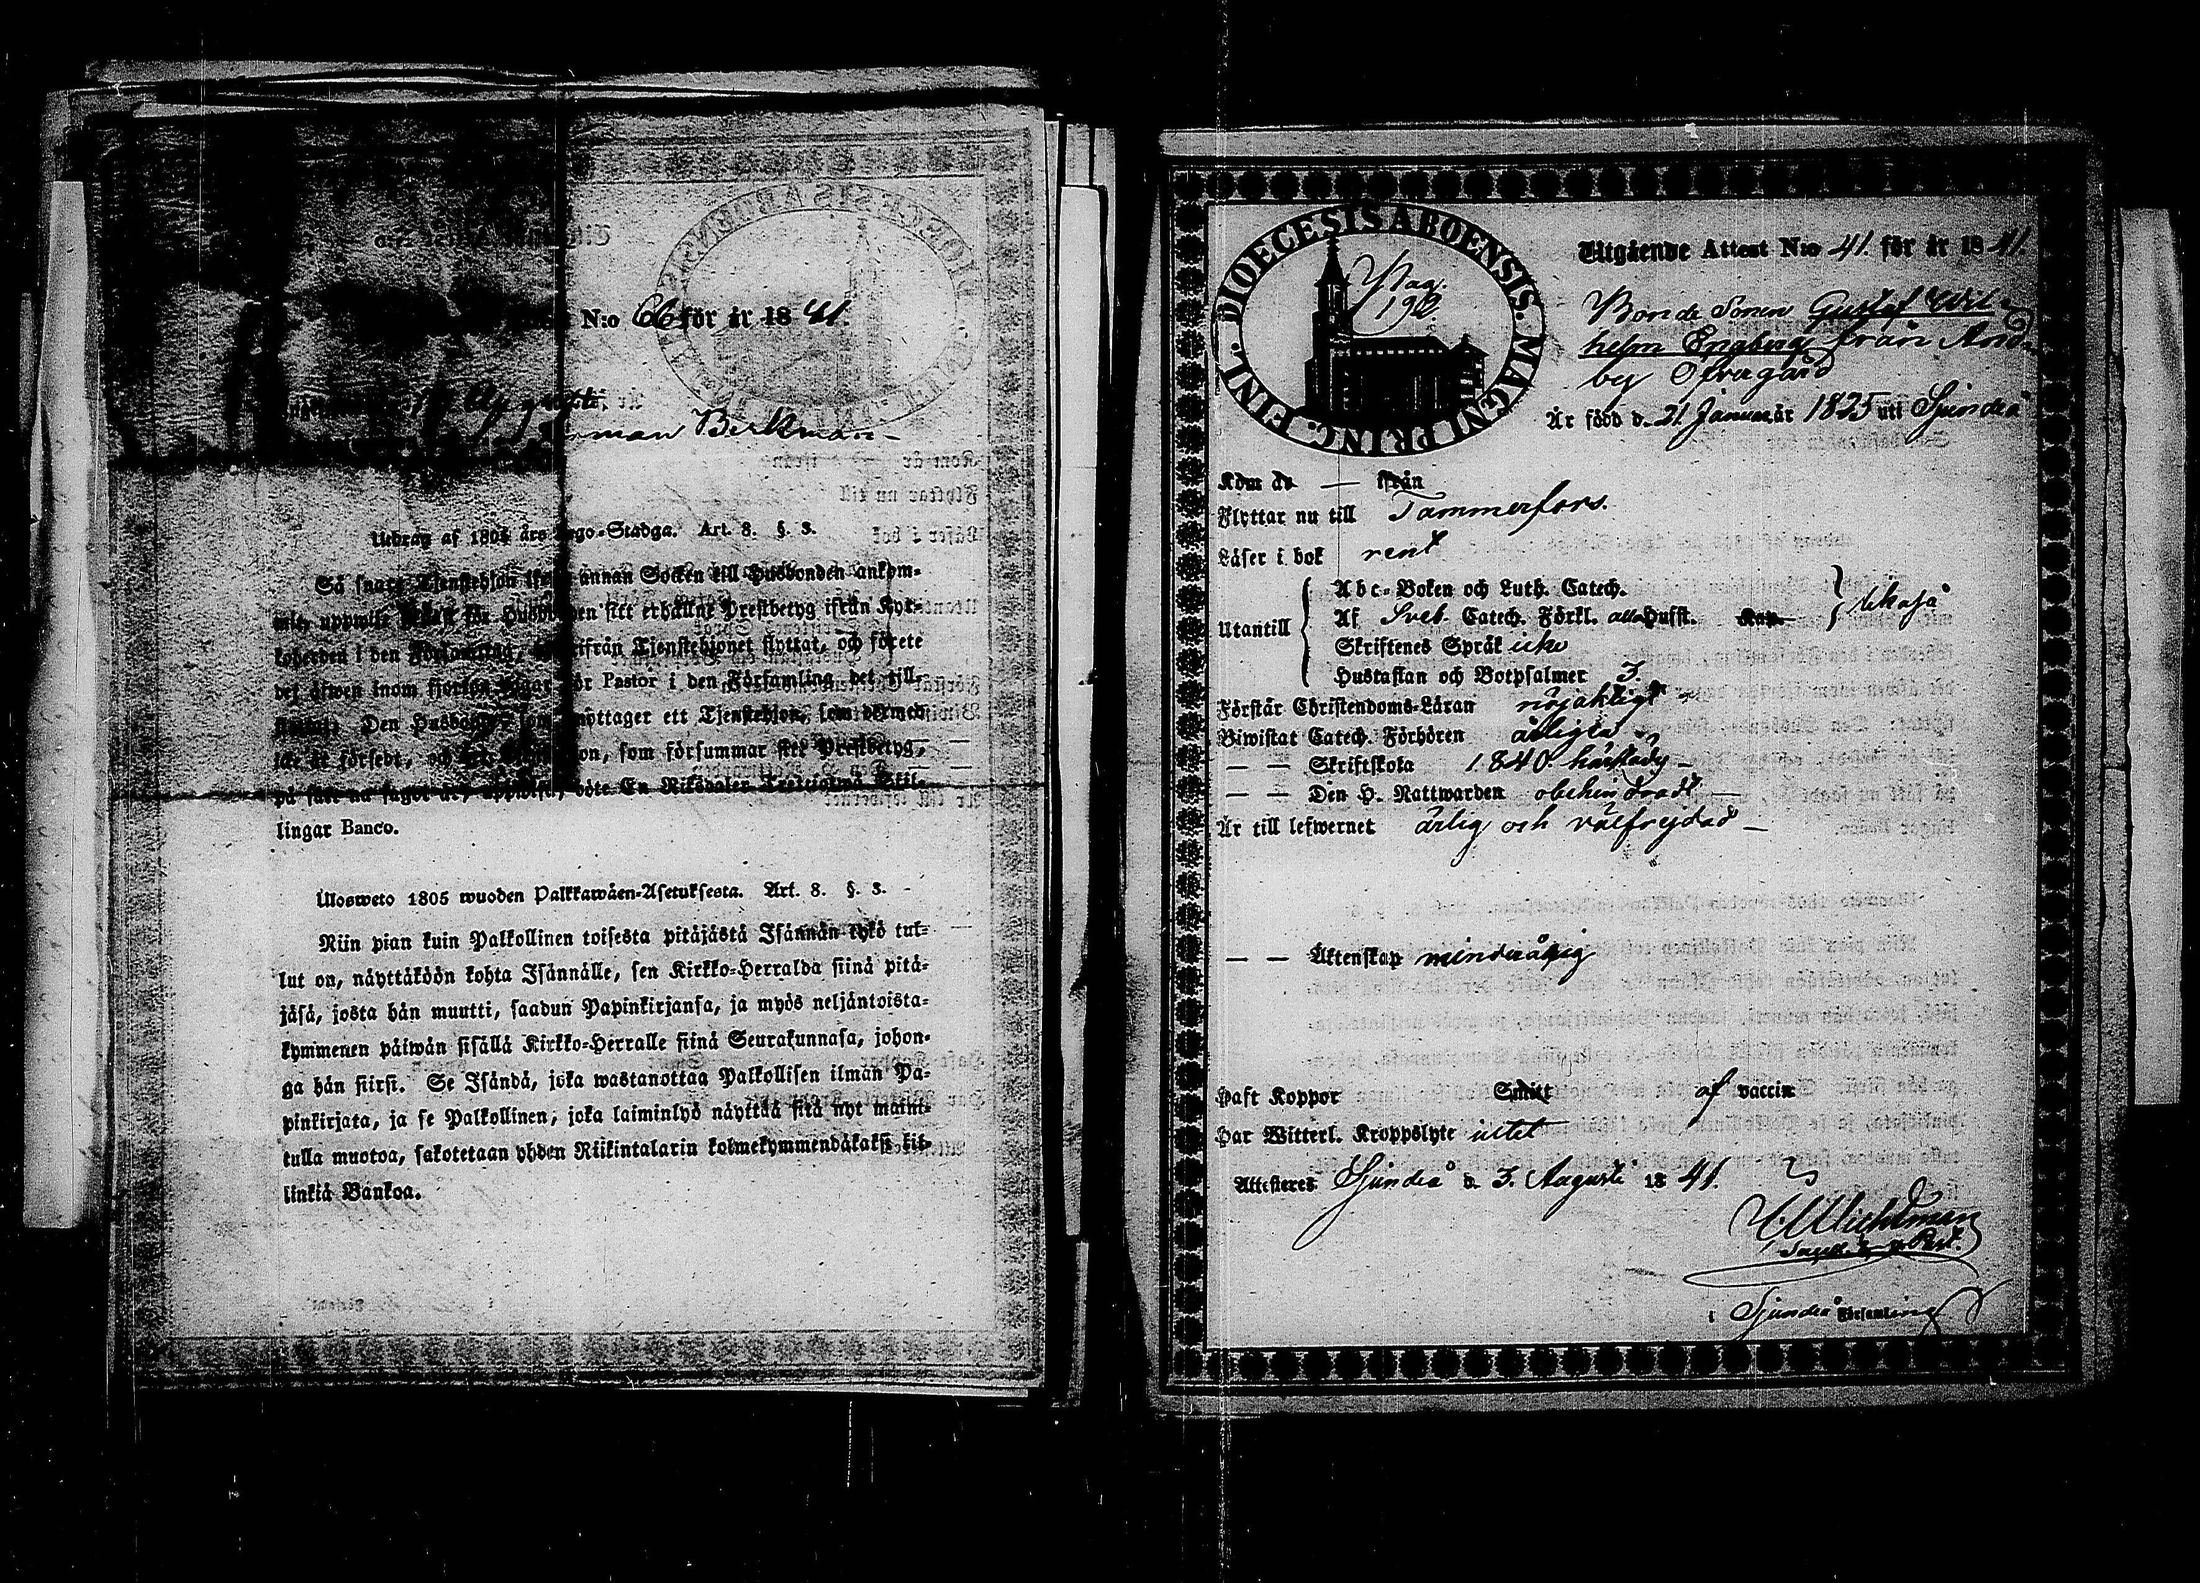 N:o 66 för år 1841.
Birkman
Utdrag af 1805 års Lego-Stadga. Art. 8. §. 3.
Så snart Tjenstehjon ifrån annan Socken till Husbonden ankom-
mit, uppwise sitt erhållne Prestbetyg ifrån Kyr-
koherden i den Församling, ifrån Tjenstehjonet flyttat, och förete
det äfwen inom fjorton dagar för Pastor i den Församling det till-
flyttat. Den Husbonde, som emottager ett Tjenstehjon, som dermed
icke är försedt, och det Tjenstehjon, som försummar sitt Prestbetyg,
på sätt nu sagdt är, uppwisa, böte En Riksdaler Trettiotwå Skil-
lingar Banco.
Ulosweto 1805 wuoden Palkkawäen-Asetuksesta. Art. 8. §. 3.
Niin pian kuin Palkollinen toisesta pitäjästä Isännän tykö tul-
lut on, näyttäköön kohta Isännälle, sen Kirkko-Herralda siinä pitä-
jäsä, josta hän muutti, saadun Papinkirjansa, ja myös neljäntoista-
kymmenen päiwän sisällä Kirkko-Herralle siinä Seurakunnasa, johon-
ga hän siirsi. Se Isändä, joka wastanottaa Palkollisen ilman Pa-
pinkirjata, ja se Palkollinen, joka laiminlyö näyttää sitä nyt maini-
tulla muotoa, sakotetaan yhden Riikintalarin kolmekymmendäkaksi kil-
linkiä Bankoa.
DIOECESIS ABOENSIS. MAGNI PRINC. FINL.
Pag. 192
Utgående Attest N:o 41. för år 1841.
Bonde Sonen Gustaf Wil-
helm Engberg från And-
by Öfvergård
Är född d. 21 Januar år 1825 uti Sjundeå
Kom år — ifrån
Flyttar nu till Tammerfors.
Läser i bok rent
Utantill
Abc-Boken och Luth. Catech.
Af Sveb. Catech. Förkl. alla Husst. Kap.
Skriftenes Språk icke
Hustaflan och Botpsalmer 3.
Förstår Christendoms-Läran nöjaktigt
Biwistat Catech. Förhören årligen
— — Skriftskola 1840 härstädes —
— — Den H. Nattwarden obehindradt —
Är till lefwernet ärlig och välfrejdad —
— — Äktenskap minderårig
Haft Koppor Smitt af vaccin
Har Witterl. Kroppslyte intet
Attesteres Sjundeå d. 3. Augusti 1841.
i Sjundeå Församling